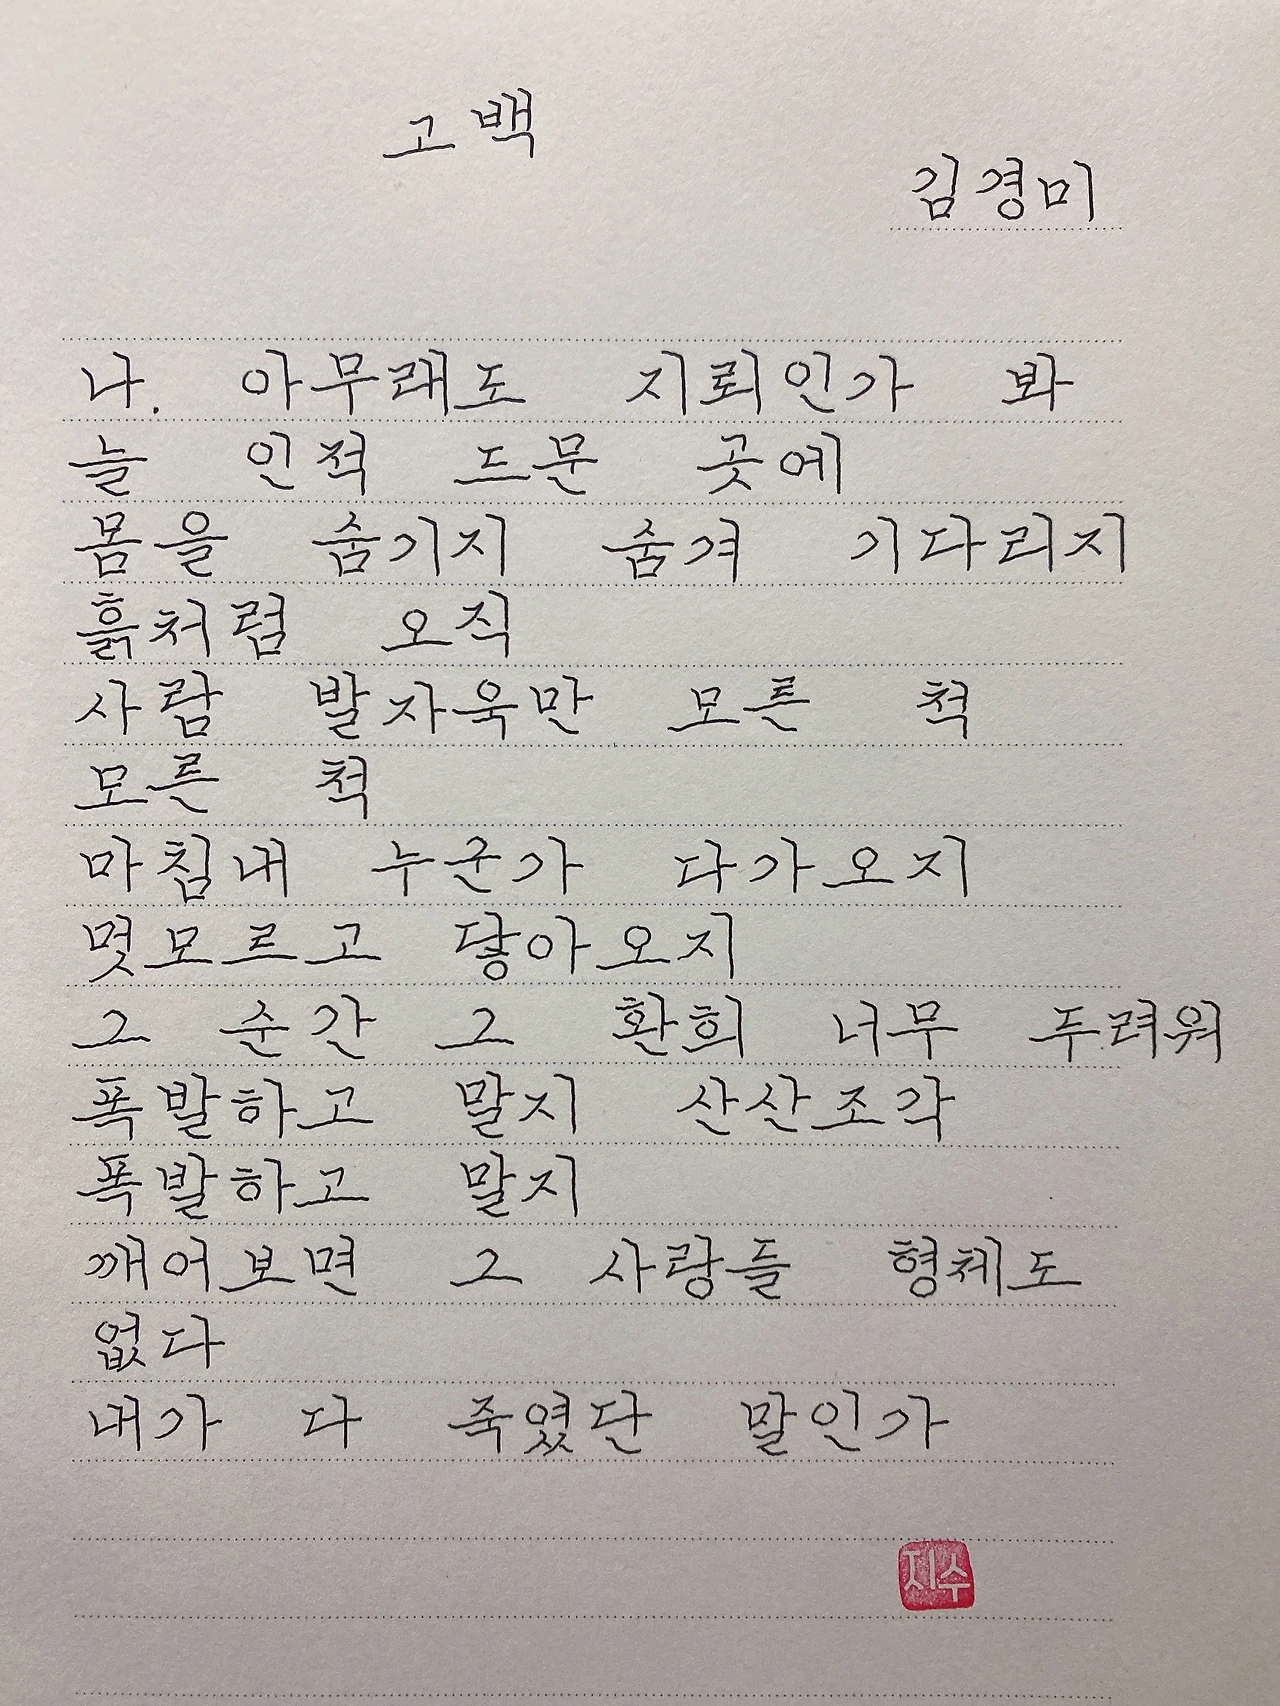 고백
김경미
나. 아무래도 지뢰인가 봐
늘 인적 드문 곳에
몸을 숨기지 숨겨 기다리지
흙처럼 오직
사람 발자욱만 모른 척
모른 척
마침내 누군가 다가오지
멋모르고 닿아오지
그 순간 그 환희 너무 두려워
폭발하고 말지 산산조각
폭발하고 말지
깨어보면 그 사랑들 형체도
없다
내가 다 죽였단 말인가
지수